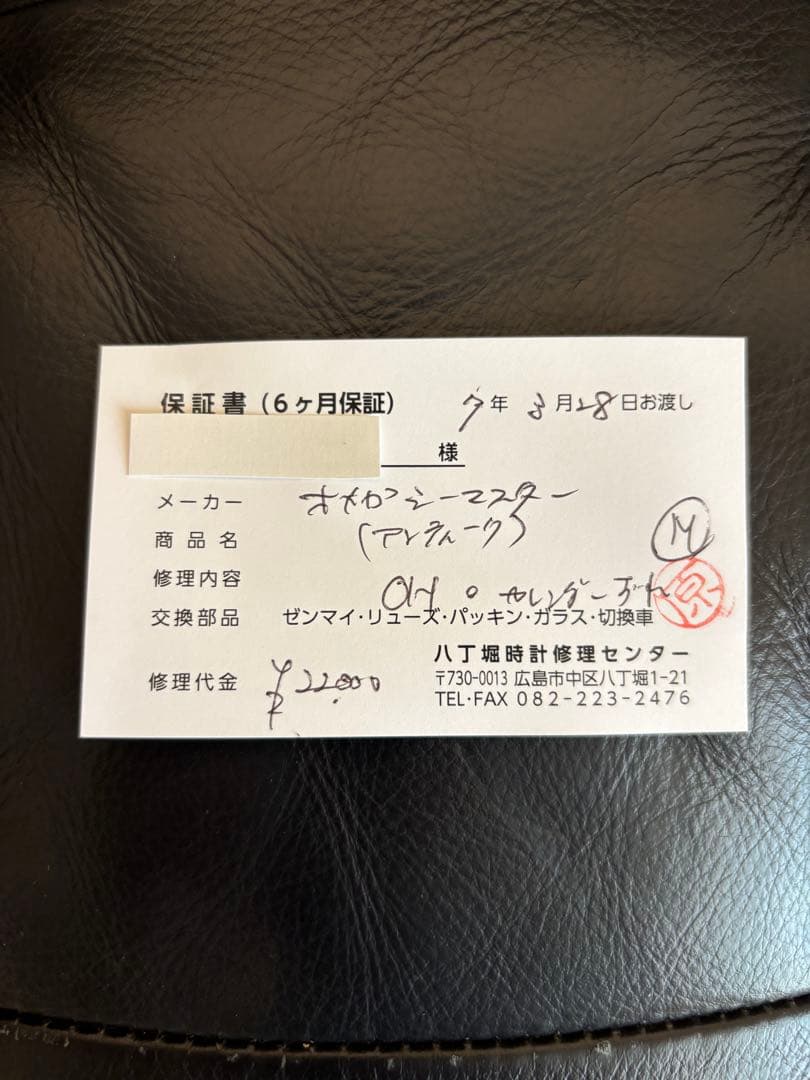 保証書（6ヶ月保証） 7年 3月28日お渡し
様
メーカー オメガシーマスター
商品名 (アンティーク)
M
修理内容 OH。カレンダーずれ
交換部品 ゼンマイ・リューズ・パッキン・ガラス・切換車
八丁堀時計修理センター
修理代金 ¥22.000
〒730-0013 広島市中区八丁堀1-21
TEL・FAX 082-223-2476